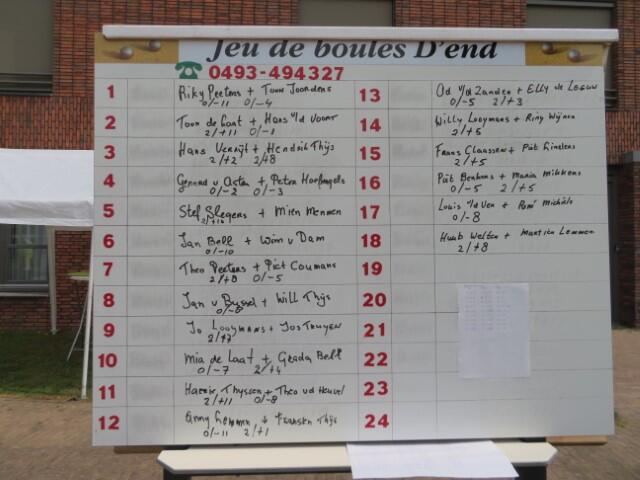 Jeu de boules D'end
0493-494327
1 Riky Peetens + Toon Joordens
0/-11 0/-4
2 Toon de Laat + Hans v/d Voort
2/+11 0/-1
3 Hans Verrijt + Hendrik Thijs
2/+2 2/+8
4 Gerard v Asten + Peter
0/-2 0/-3
5 Stef Slegers + Mien Mennen
6 Jan Bell + Wim v Dam
0/-10
7 Theo Peeters + Piet Coumans
2/+8 0/-5
8 Jan v Bussel + Will Thijs
9 Jo Looymans + Jos Truyen
2/+7
10 Mia de Laat + Grada Bell
0/-7 2/+4
11 Harrie Thyssen + Theo vd Heuvel
2/+11 0/-8
12 + Fransien Thijs
0/-11 2/+1
13 Ad v/d Zanden + Elly de Leeuw
0/-5 2/+3
14 Willy Looymans + Riny Wijnen
2/+5
15 Frans Claassen + Piet
2/+5
16 Piet Benkens + Maria
0/-5 2/+5
17 Louis v/d Ven + René Michiels
0/-8
18 Huub Welten + Martien Lemmen
2/+8
19
20
21
22
23
24